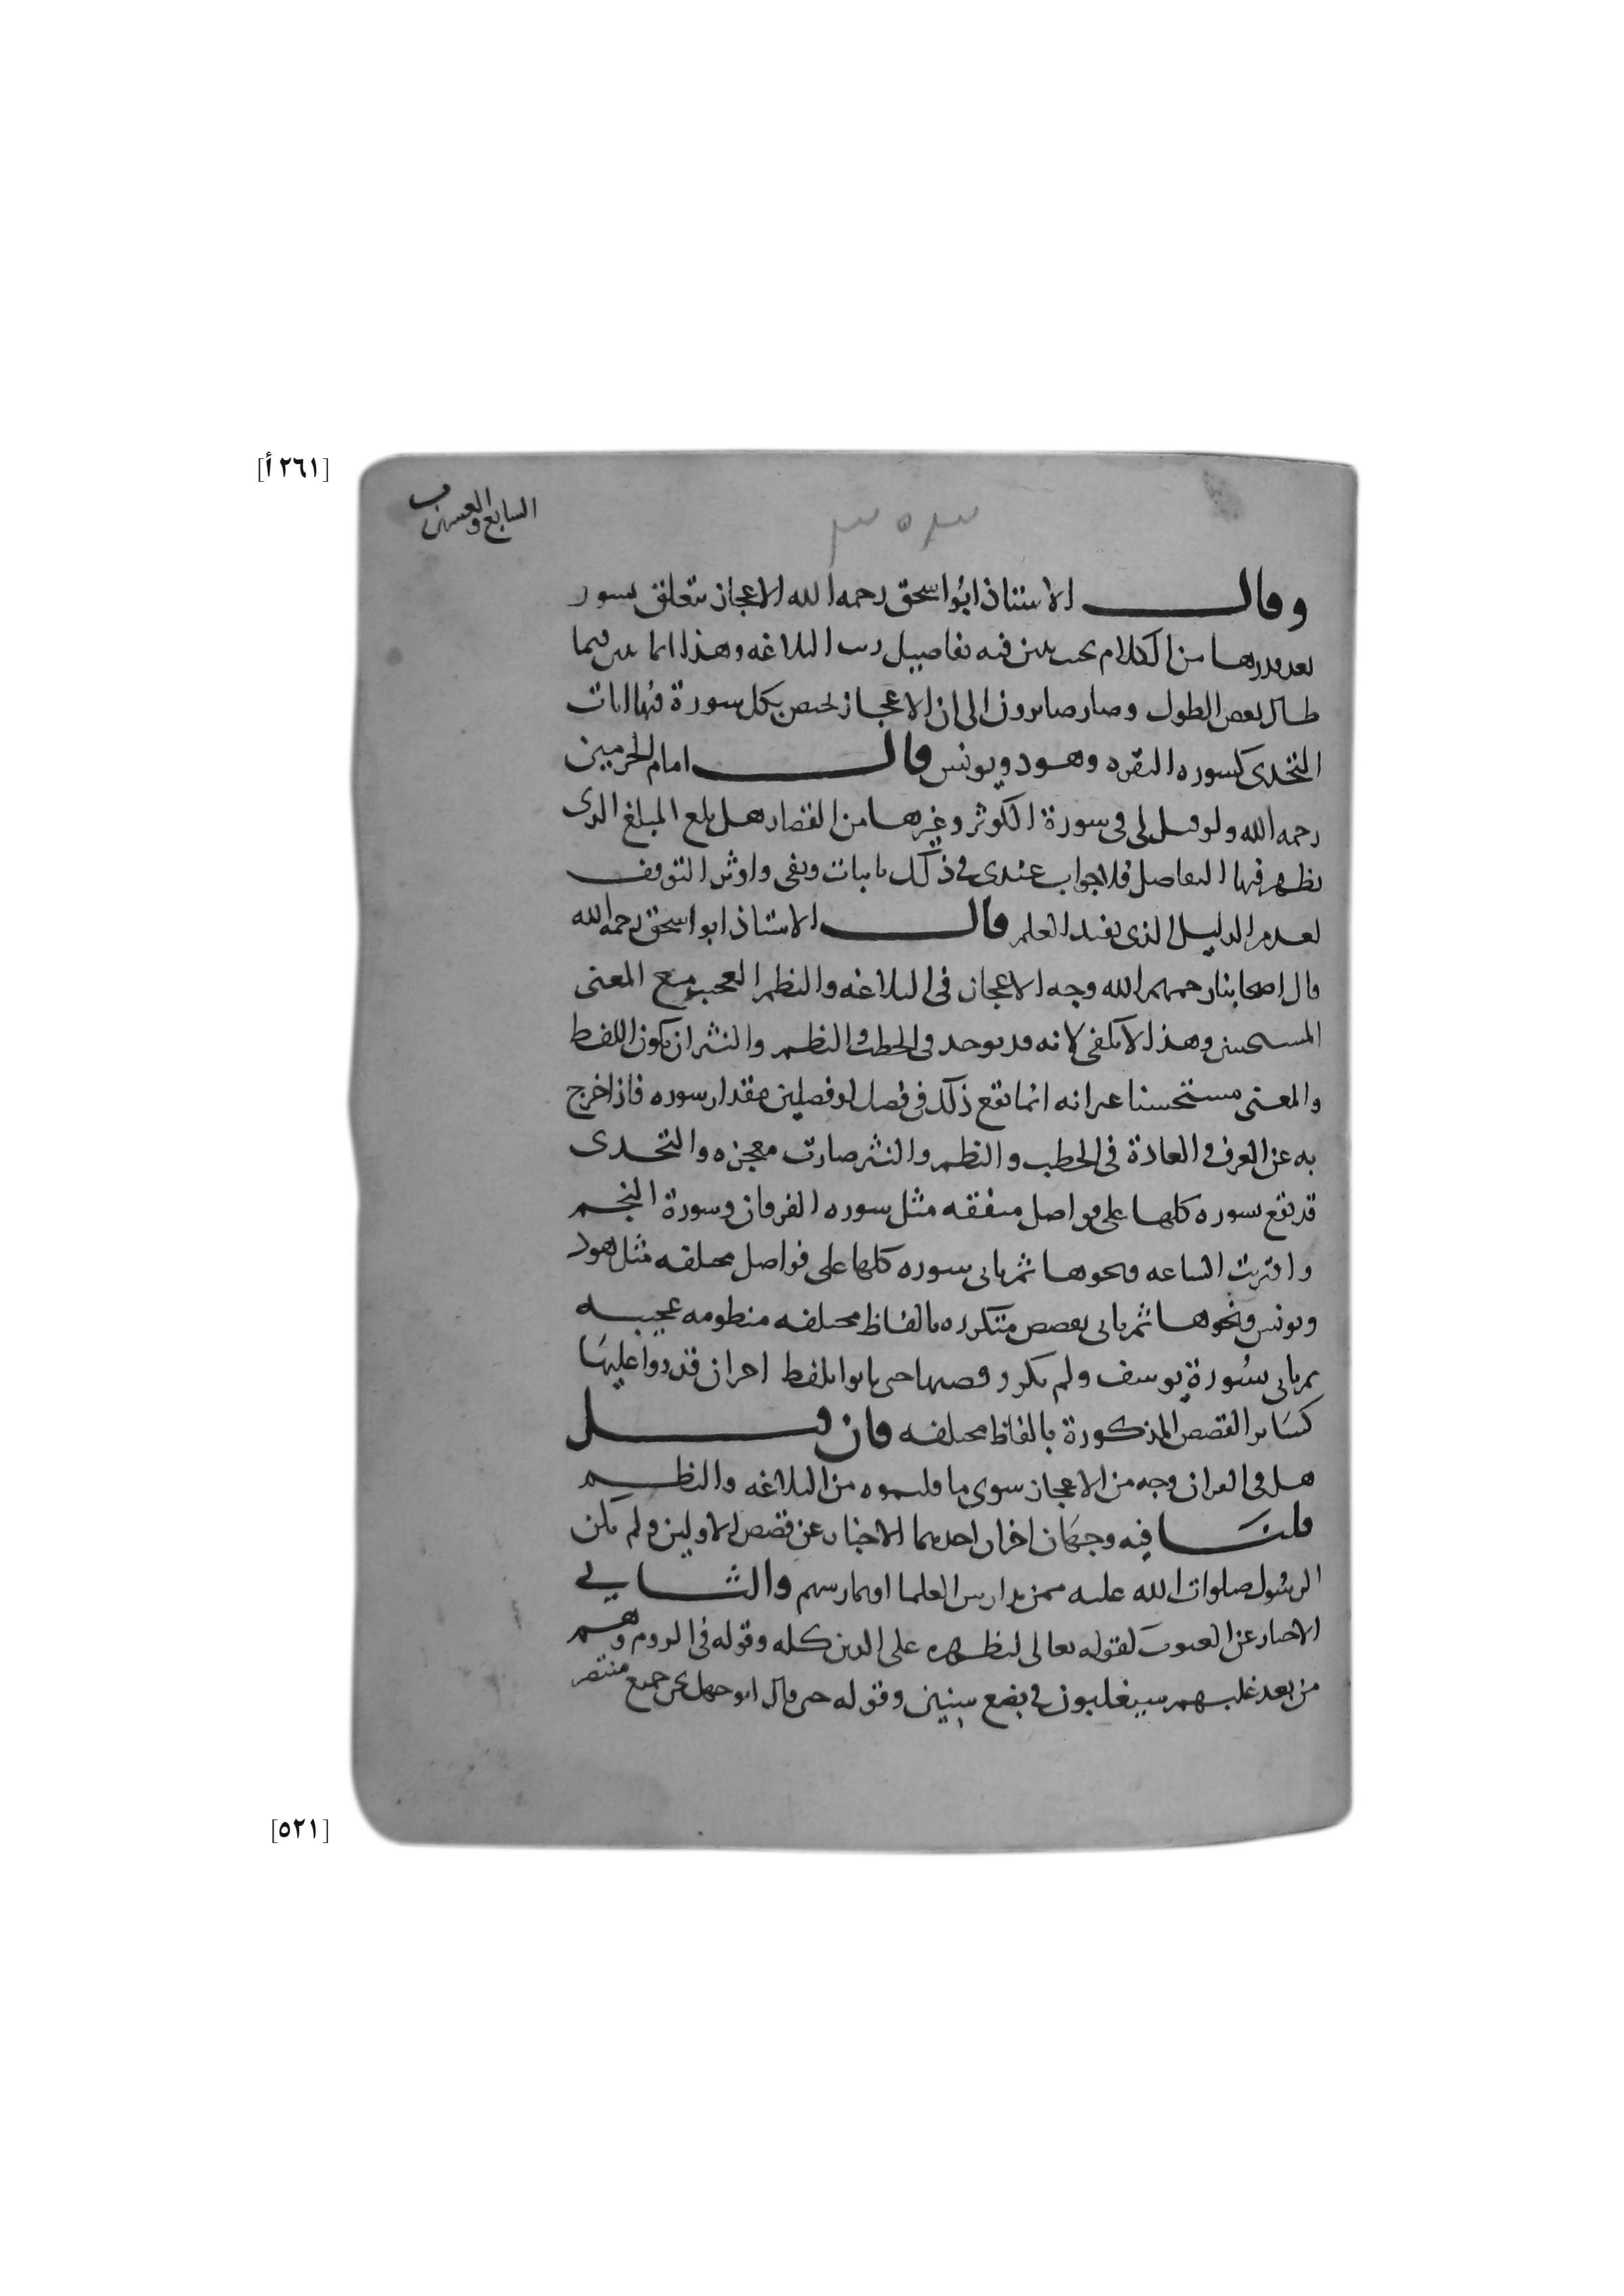 [٢٦١ أ]
السابع والعشرين
وقال الاستاذ ابو اسحق رحمه الله الاعجاز يتعلق بسور
بعد قدرها من الكلام بحيث يتبين فيه تفاصيل رتب البلاغه وهذا انما يتبين فيما
طال بعض الطول وصار صايرون الى ان الاعجاز يختص بكل سورة فيها ايات
التحدى كسوره البقره وهود ويونس قال امام الحرمين
رحمه الله ولو قيل لى فى سورة الكوثر وغيرها من القصار هل بلغ المبلغ الذى
يظهر فيها التفاصل فلا جواب عندى فى ذلك باثبات ونفى واوثر التوقف
لعدم الدليل الذى يفيد العلم قال الاستاذ ابو اسحق رحمه الله
قال اصحابنا رحمهم الله وجه الاعجاز فى البلاغه والنظم العجيب مع المعنى
المستحسن وهذا لا يكفى لانه قد يوجد فى الخطب والنظم والنثر ان يكون اللفظ
والمعنى مستحسنا غير انه انما تقع ذلك فى فصل او فصلين مقدار سوره فاذا خرج
به عن العرف والعادة فى الخطب والنظم والنثر صارت معجزه والتحدى
قد تقع بسوره كلها على فواصل متفقه مثل سوره الفرقان وسورة النجم
واقتربت الساعه ونحوها ثم ياتى بسوره كلها على فواصل مختلفه مثل هود
ويونس ونحوها ثم ياتى بقصص متكرره بالفاظ مختلفه منظومه عجيبه
ثم ياتى بسورة يوسف ولم يكرر قصتها حتى ياتوا بلفظ اخر ان قدروا عليها
كساير القصص المذكورة بالفاظ مختلفه فان قيل
هل فى القران وجه من الاعجاز سوى ما قلتموه من البلاغه والنظم
قلنا فيه وجهان اخران احدهما الاخبار عن قصص الاولين ولم يكن
الرسول صلوات الله عليه ممن يدارس العلما او يمارسهم والثانى
الاخبار عن الغيوب كقوله تعالى ليظهره على الدين كله وقوله فى الروم وهم
من بعد غلبهم سيغلبون فى بضع سنين وقوله حين قال ابو جهل نحن جميع منتصر
[٥٢١]